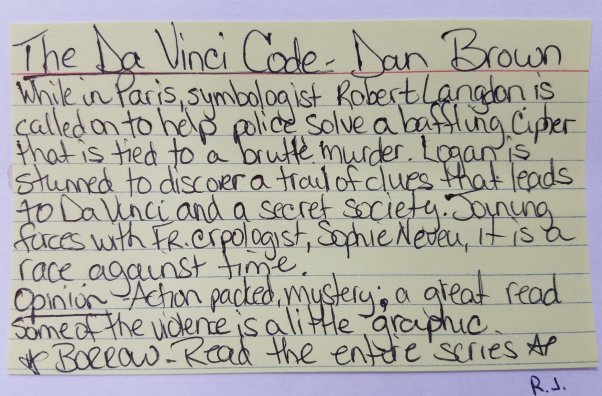 The Da Vinci Code - Dan Brown
While in Paris, symbologist Robert Langdon is
called on to help police solve a baffling cipher
that is tied to a brutle murder. Logan is
stunned to discover a trail of clues that leads
to Da Vinci and a secret society. Joining
forces with FR. crpologist, Sophie Neveu, it is a
race against time.
Opinion - Action packed, mystery; a great read
Some of the violence is a little graphic.
☆ Borrow - Read the entire series ☆
R.J.